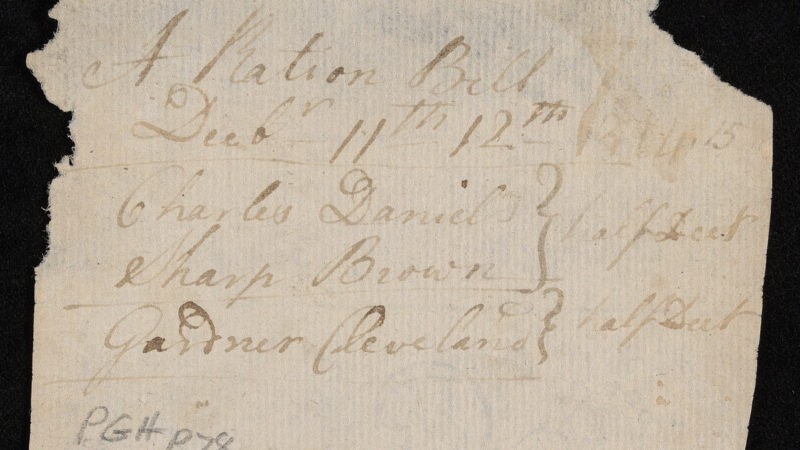 A Ration Bill
Decbr 11th 12th 15
Charles Daniels } half Deet
Sharp Brown
Gardner Cleveland } half Deet
PGH P78